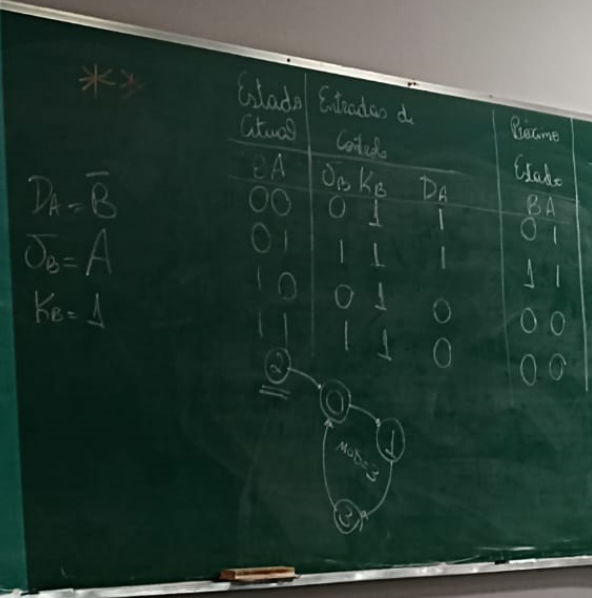 **
D_A = B̄
J_B = A
K_B = 1
Estado Atual | Entradas de Controle | Próximo Estado
B A | J_B K_B D_A | B A
0 0 | 0 1 1 | 0 1
0 1 | 1 1 1 | 1 1
1 0 | 0 1 0 | 0 0
1 1 | 1 1 0 | 0 0
2
0
1
MOD=3
3